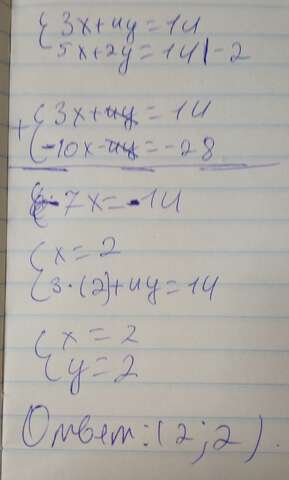 {3x+4y=14
5x+2y=14|-2
+{3x+4y=14
-10x-4y=-28
-7x=-14
{x=2
3·(2)+4y=14
{x=2
y=2
Ответ:(2;2).